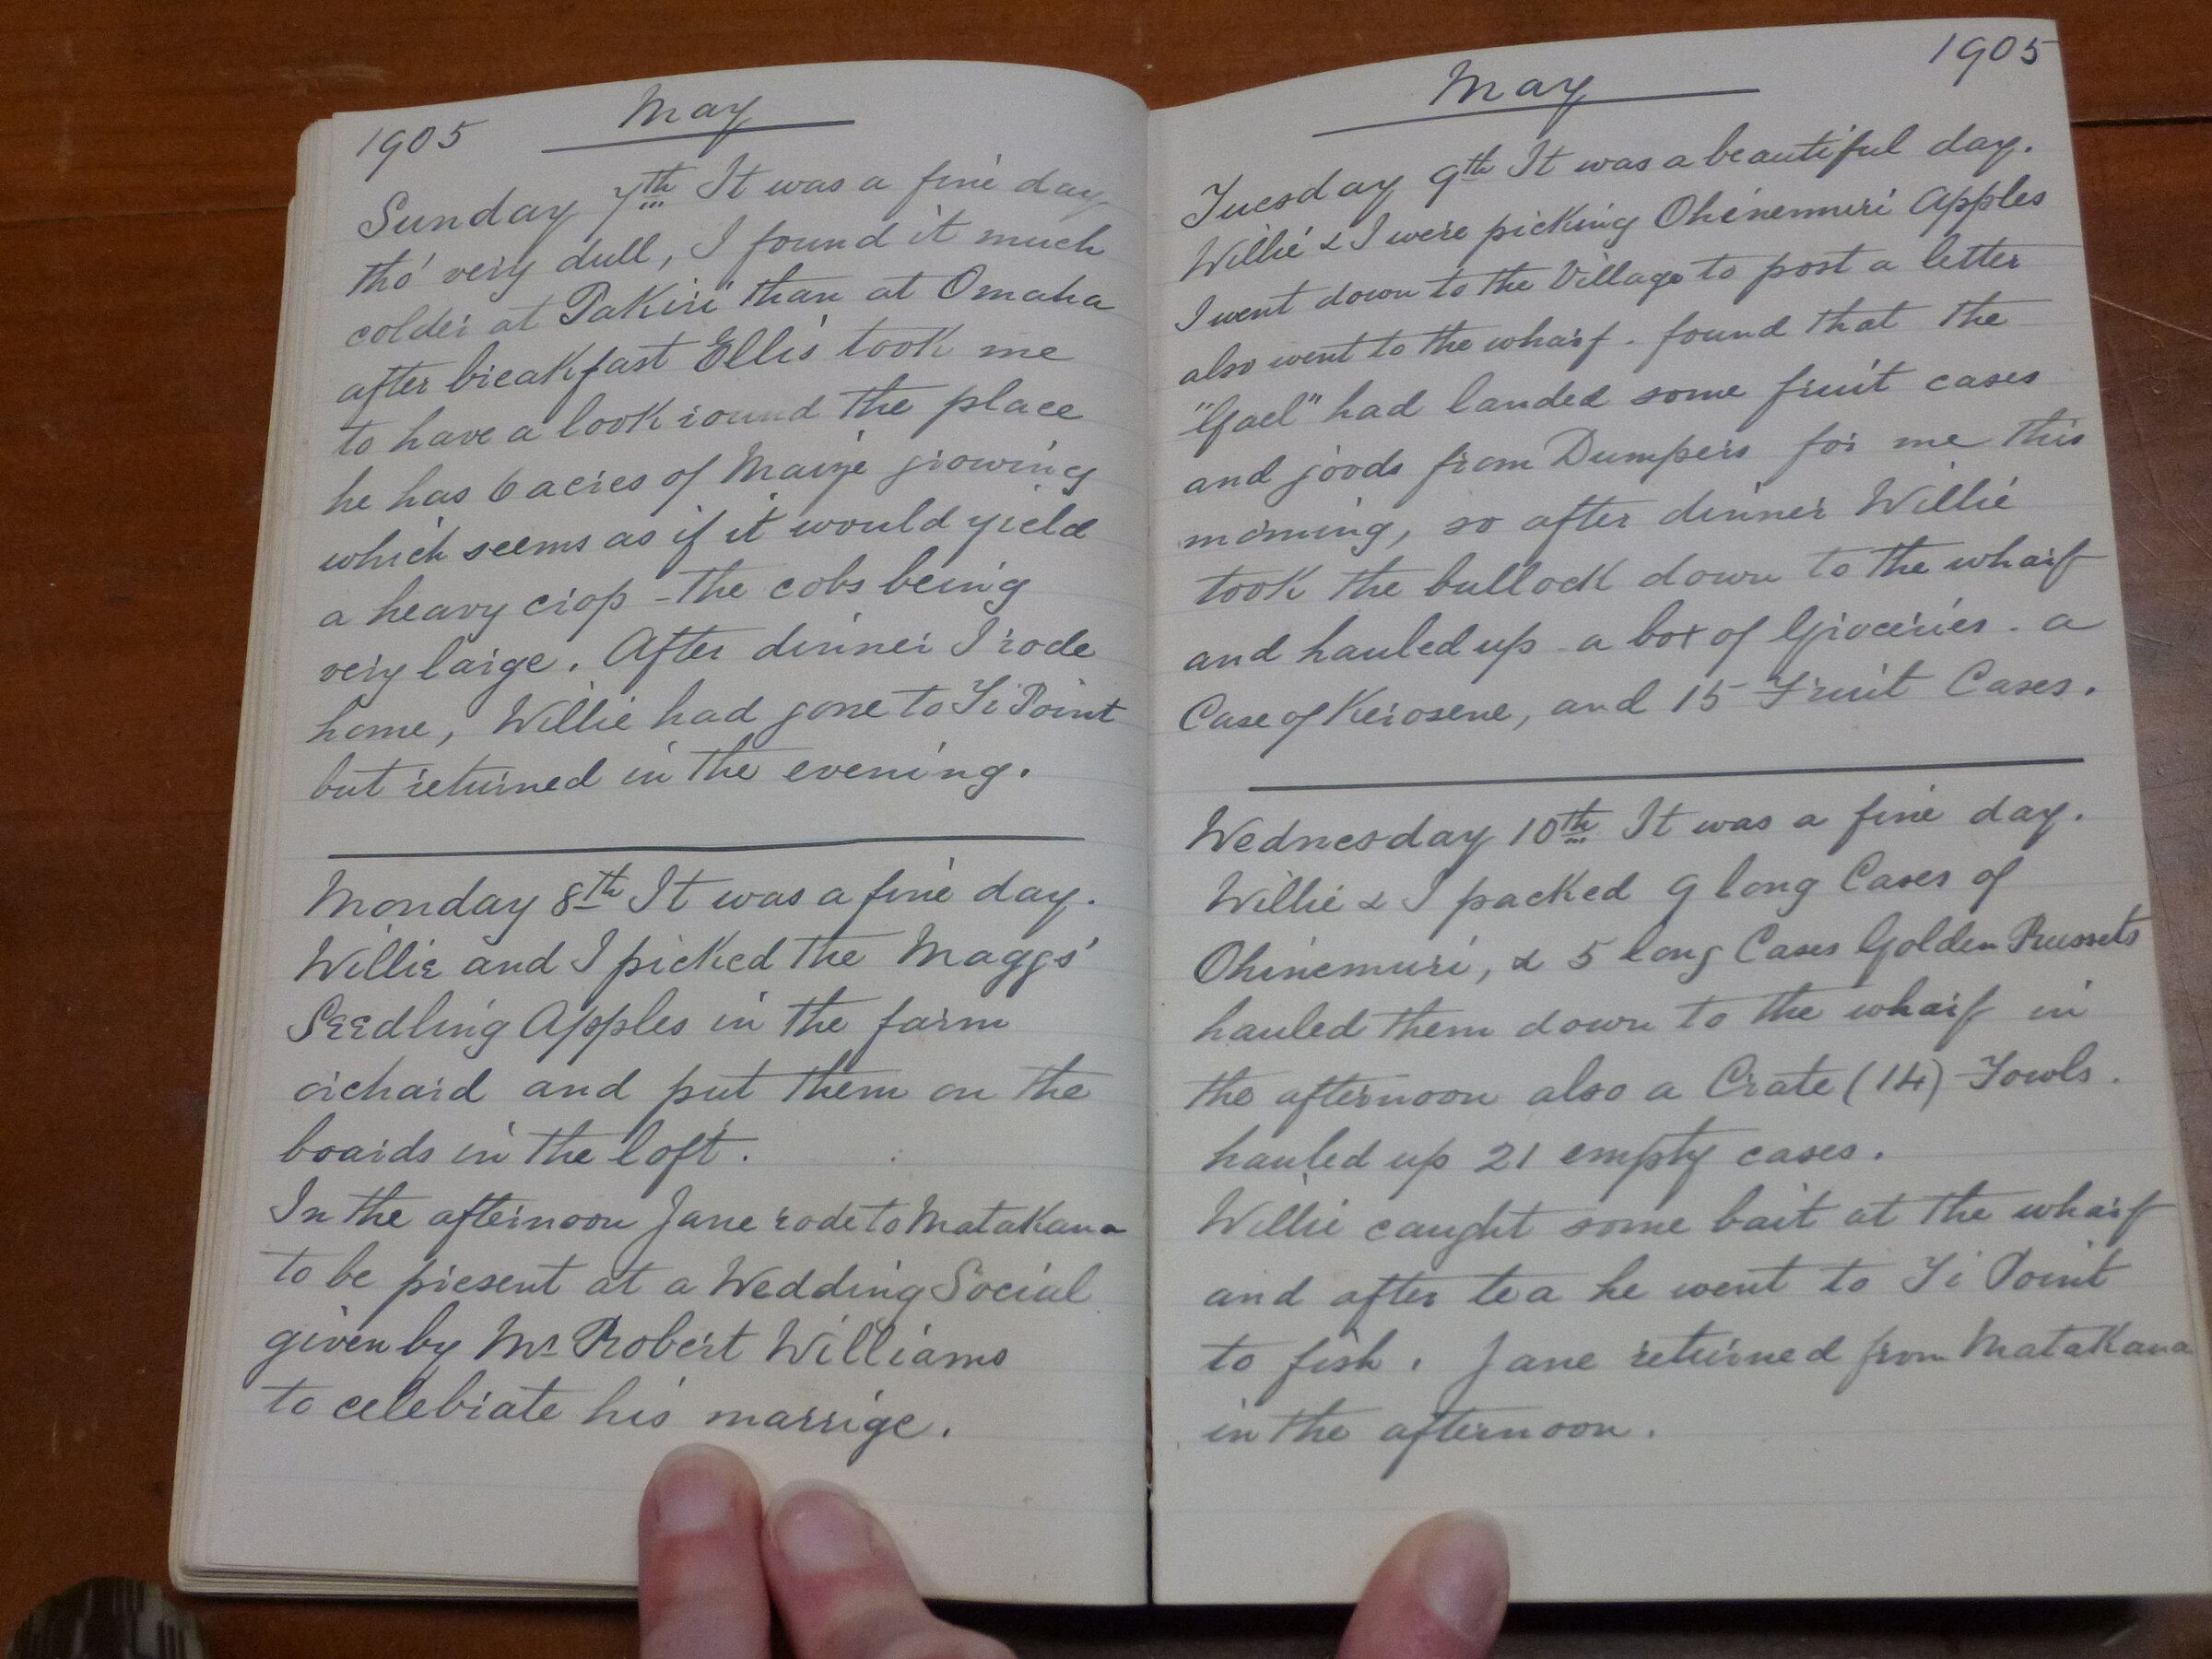 1905 May
Sunday 7th It was a fine day
tho' very dull, I found it much
colder at Pakiri than at Omaha
after breakfast Ellis took me
to have a look round the place
he has 6 acres of Maize growing
which seems as if it would yield
a heavy crop - the cobs being
very large. After dinner I rode
home, Willie had gone to Ti Point
but returned in the evening.
Monday 8th It was a fine day.
Willie and I picked the Maggs'
Seedling Apples in the farm
orchard and put them on the
boards in the loft.
In the afternoon Jane rode to Matakana
to be present at a Wedding Social
given by Mr Robert Williams
to celebrate his marrige.
May 1905
Tuesday 9th It was a beautiful day.
Willie & I were picking Ohinemuri Apples
I went down to the Village to post a letter
also went to the wharf. found that the
"Gael" had landed some fruit cases
and goods from Dumpers for me this
morning, so after dinner Willie
took the bullock down to the wharf
and hauled up a box of Groceries. a
Case of Kerosene, and 15 Fruit Cases.
Wednesday 10th It was a fine day.
Willie & I packed 9 long Cases of
Ohinemuri, & 5 long Cases Golden Russets
hauled them down to the wharf in
the afternoon also a Crate (14) Fowls.
hauled up 21 empty cases.
Willie caught some bait at the wharf
and after tea he went to Ti Point
to fish. Jane returned from Matakana
in the afternoon.